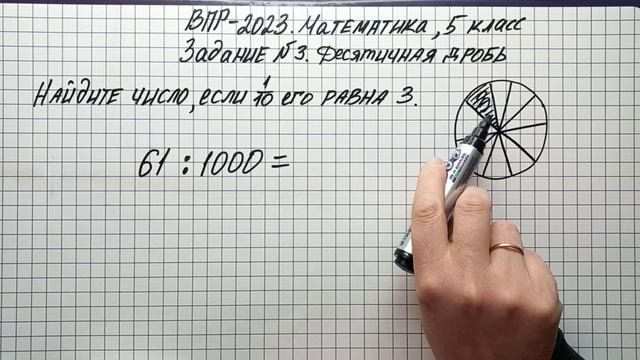 ВПР-2023. Математика, 5 класс
Задание №3. Десятичная дробь
Найдите число, если 1/10 его равна 3.
61 : 1000 =